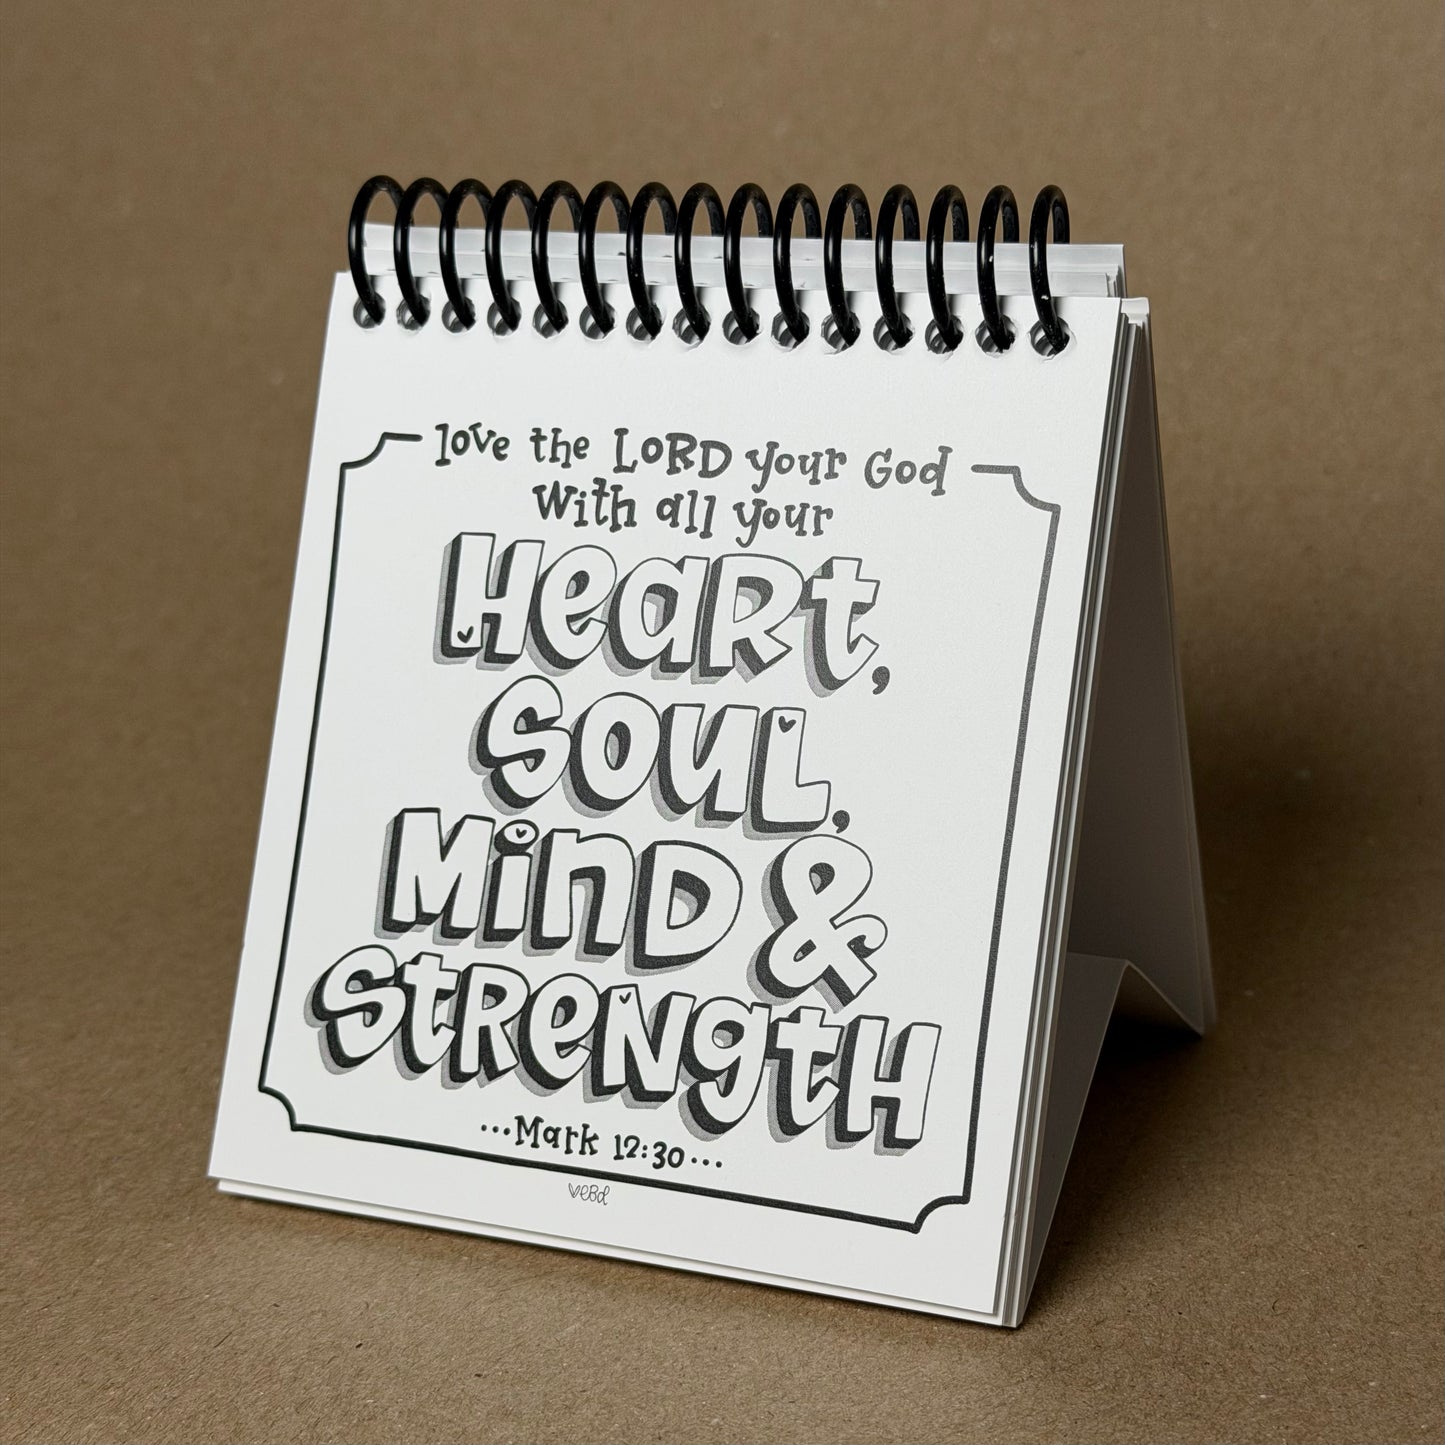 love the LORD your God
With all your
Heart,
Soul,
Mind &
Strength
...Mark 12:30...